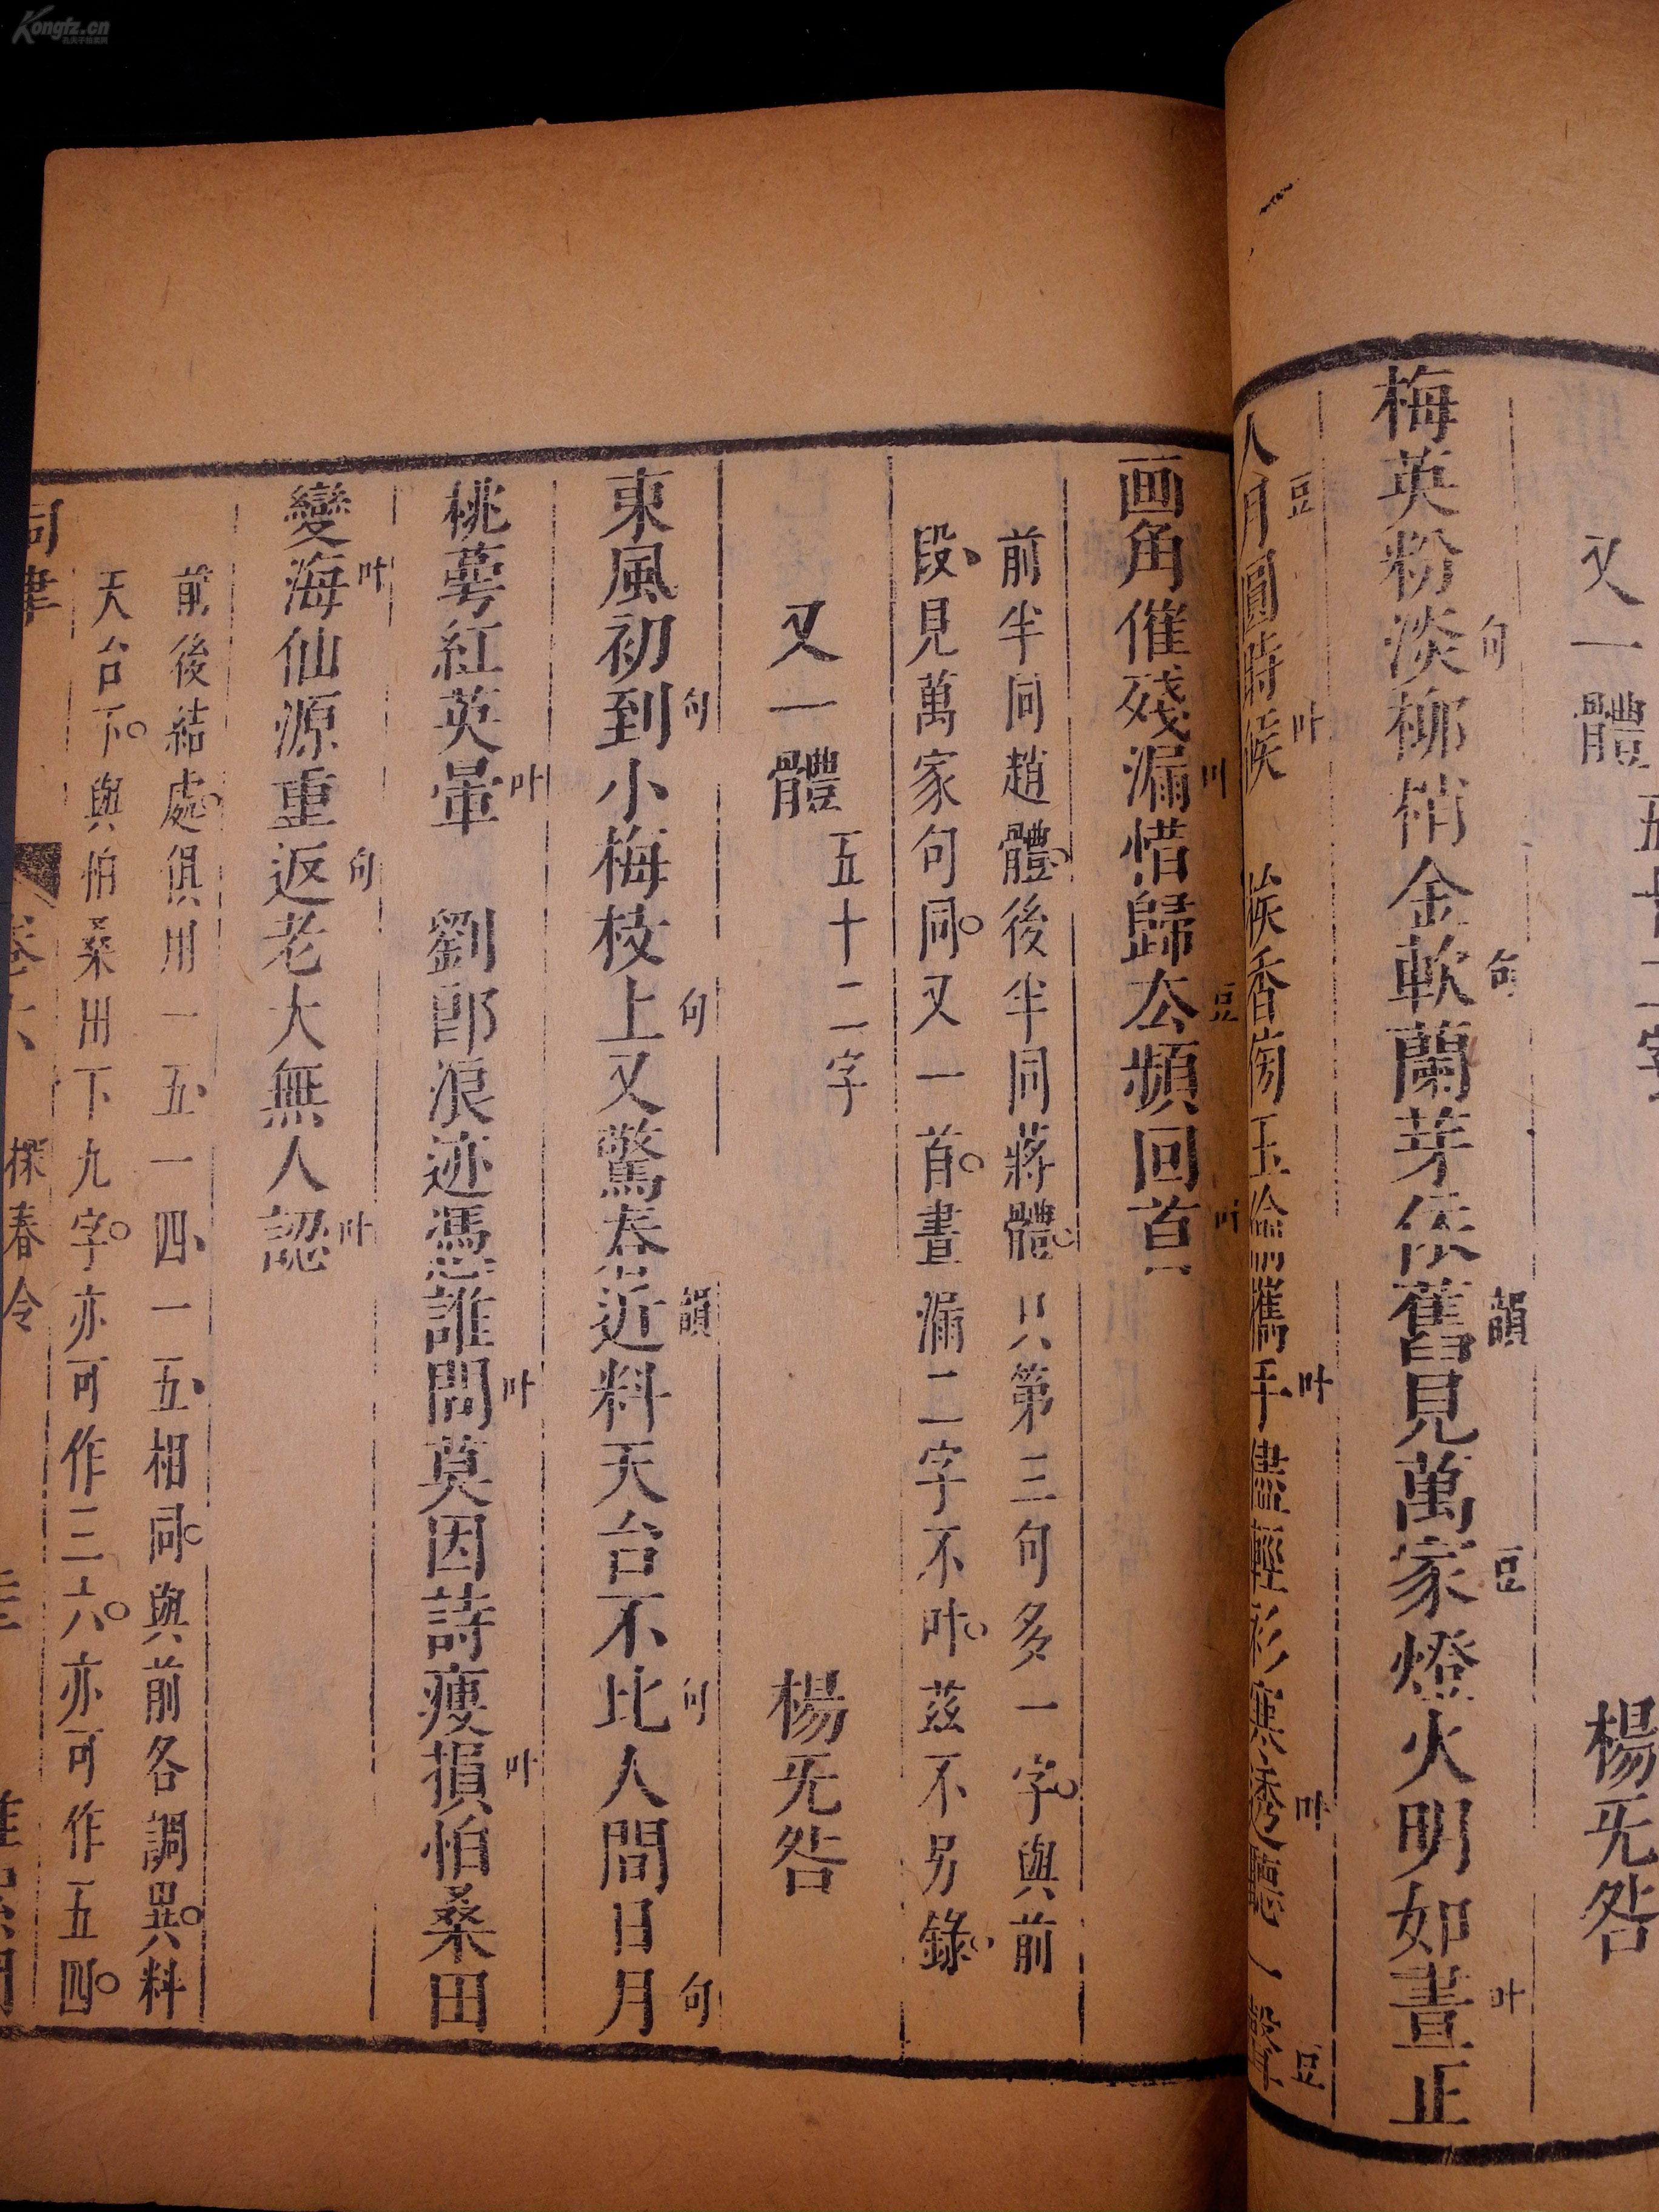 又一體 五十二字 楊无咎
梅英粉淡句柳梢金軟句蘭芽依舊韻見萬家豆燈火明如晝叶正
人月豆圓時候叶 挨香傍玉偸攜手叶儘輕衫寒透叶聽豆
画角催殘漏叶惜歸去豆頻回首叶
前半同趙體後半同蔣體只第三句多一字與前
段見萬家句同又一首晝漏二字不叶茲不另錄
又一體 五十二字 楊无咎
東風初到句小梅枝上句又驚春近韻料天台不比句人間日月句
桃萼紅英暈叶 劉郎浪迹憑誰問叶莫因詩瘦損叶怕桑田
變海叶仙源重返句老大無人認叶
前後結處俱用一五一四一五相同與前各調異料
天台下與怕桑田下九字亦可作三六亦可作五四
詞律 卷六 探春令
Kongfz.cn